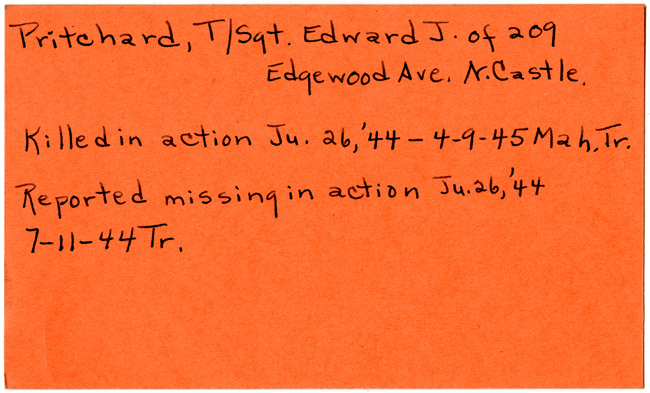 Pritchard, T/Sgt. Edward J. of 209
Edgewood Ave. N.Castle.
Killed in action Ju. 26,'44 – 4-9-45 Mah. Tr.
Reported missing in action Ju. 26,'44
7-11-44 Tr.